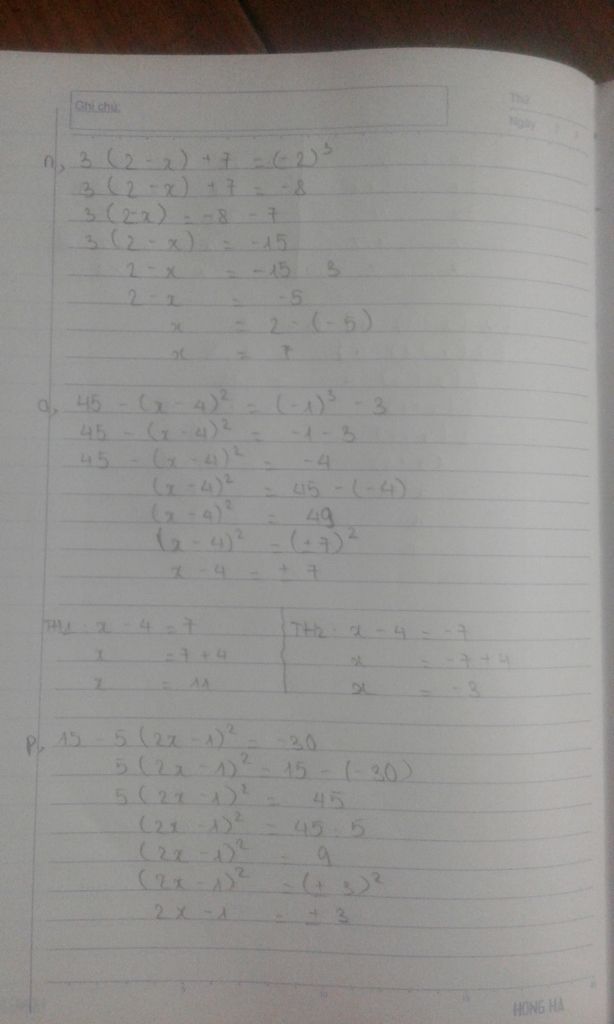 Ghi chú:
Thứ
Ngày
n, 3 (2 - x) + 7 = (-2)³
3 (2 - x) + 7 = -8
3 (2-x) = -8 - 7
3 (2 - x) = -15
2 - x = -15 : 3
2 - x = -5
x = 2 - (-5)
x = 7
o, 45 - (x - 4)² = (-1)³ - 3
45 - (x - 4)² = -1 - 3
45 - (x - 4)² = -4
(x - 4)² = 45 - (-4)
(x - 4)² = 49
(x - 4)² = (±7)²
x - 4 = ± 7
TH1: x - 4 = 7
x = 7 + 4
x = 11
TH2: x - 4 = -7
x = -7 + 4
x = -3
p, 15 - 5 (2x - 1)² = -30
5 (2x - 1)² = 15 - (-30)
5 (2x - 1)² = 45
(2x - 1)² = 45 : 5
(2x - 1)² = 9
(2x - 1)² = (± 3)²
2x - 1 = ± 3
HONG HA